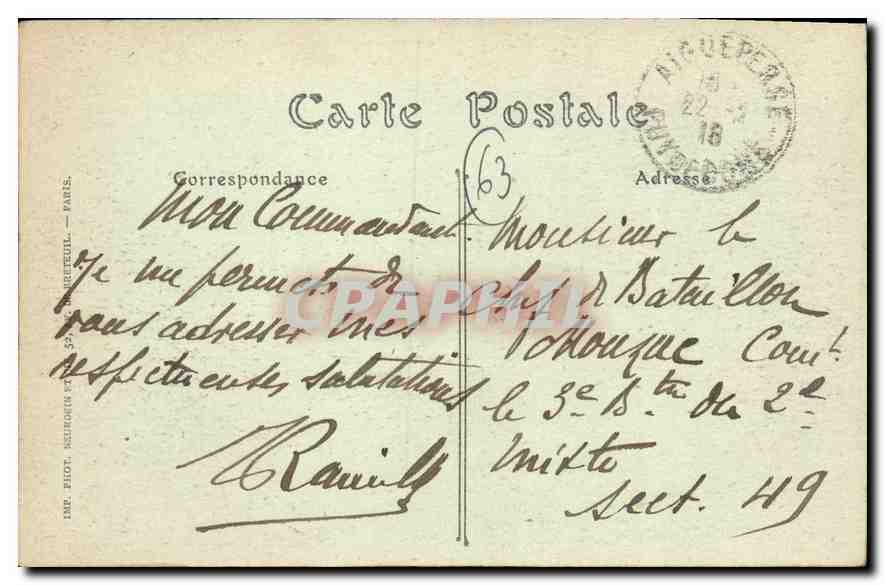 Carte Postale
AIGUEPERSE
22 - 2
16
PUY DE DOME
Correspondance
Adresse
63
Mon Commandant.
Je me permets de
vous adresser mes
respectueuses salutations
Monsieur le
Chef de Bataillon
Comt.
le 3e Btn du 2e
mixte
sect. 49
CRAPHIL
IMP. PHOT. NEURDEIN ET Cie 52, BRETEUIL. — PARIS.